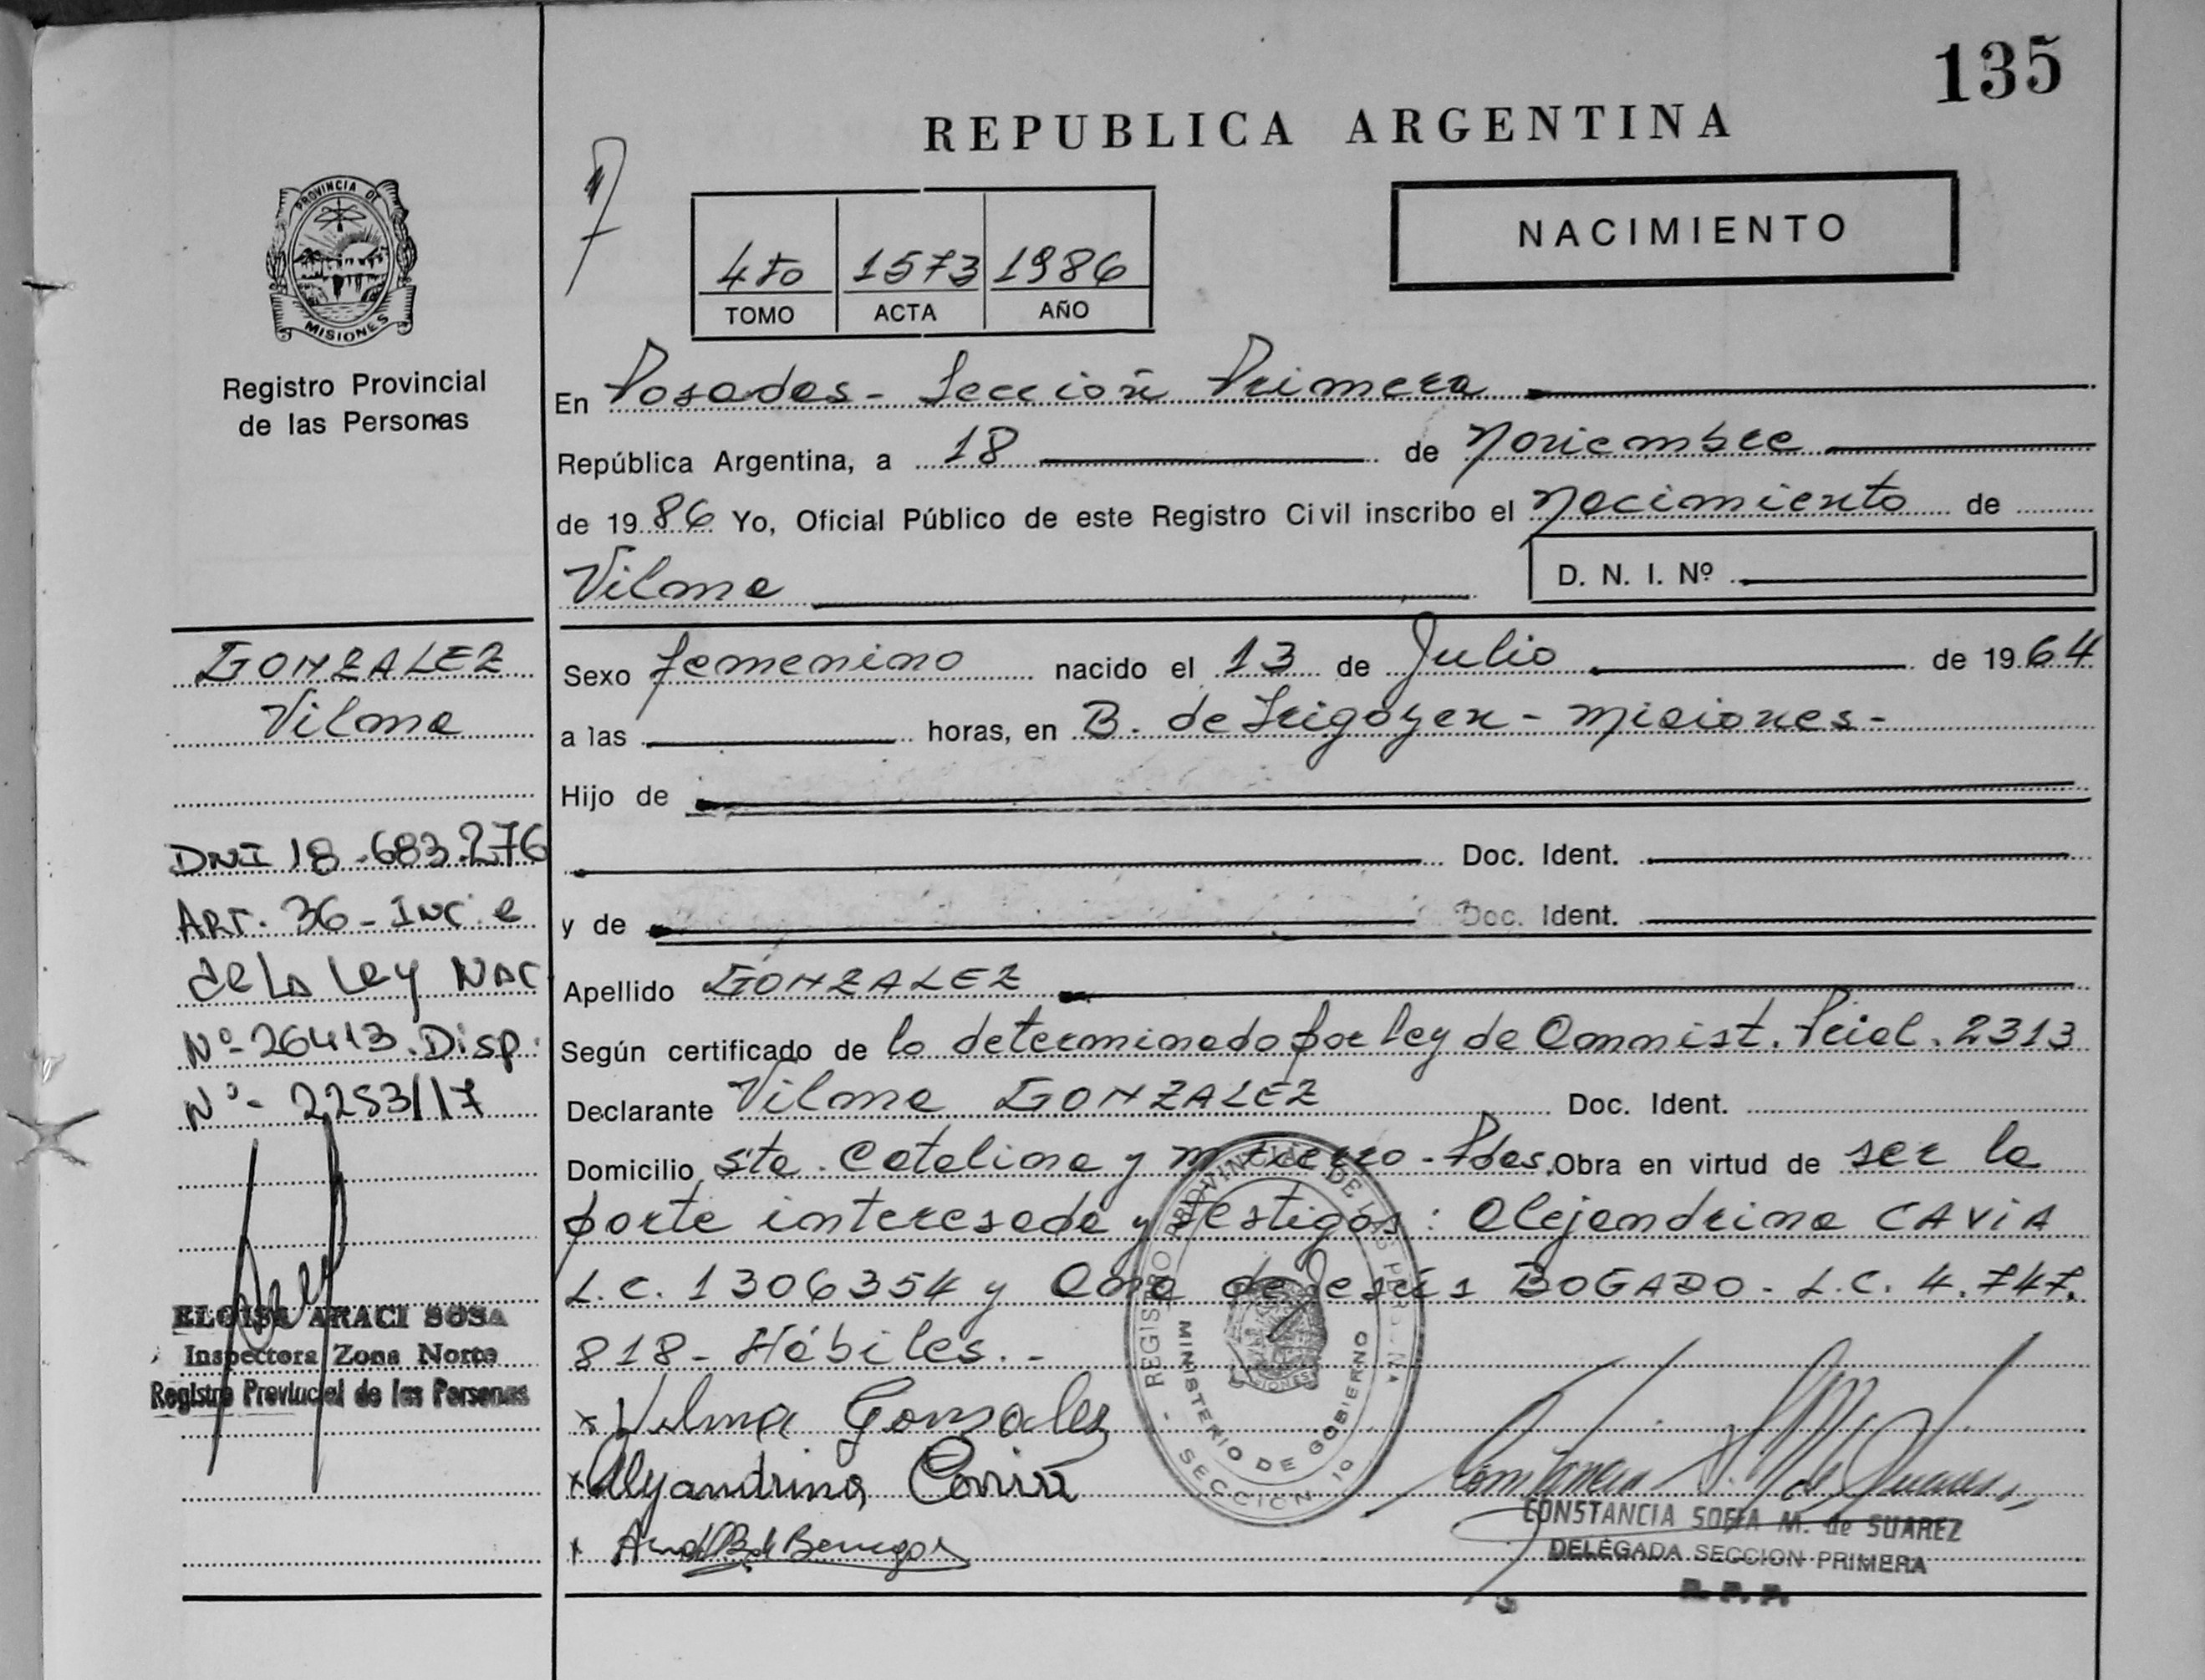 135
REPUBLICA ARGENTINA
NACIMIENTO
4to 1573 1986
TOMO ACTA AÑO
PROVINCIA DE
MISIONES
Registro Provincial
de las Personas
En Posadas - Sección Primera
República Argentina, a 18 de Noviembre
de 1986 Yo, Oficial Público de este Registro Civil inscribo el Nacimiento de
Vilma D. N. I. Nº
GONZALEZ
Vilma
DNI 18.683.276
ART. 36 - INC. e
de la Ley NAC
Nº 26413. Disp.
Nº - 2253/17
ELOISA ARACI SOSA
Inspectora Zona Norte
Registro Provincial de las Personas
Sexo femenino nacido el 13 de Julio de 1964
a las horas, en B. de Irigoyen - Misiones -
Hijo de
Doc. Ident.
y de Doc. Ident.
Apellido GONZALEZ
Según certificado de lo determinado por ley de Amnist. Pcial. 2313
Declarante Vilma GONZALEZ Doc. Ident.
Domicilio Sta. Catalina y - Pdas. Obra en virtud de ser la
parte interesada y testigos: Alejandrina CAVIA
L.C. 1306354 y Ana de Jesús BOGADO - L.C. 4.747.
818 - Hábiles. -
x Vilma Gonzalez
x Alejandrina Cavia
x
REGISTRO PROVINCIAL DE LAS PERSONAS
MINISTERIO DE GOBIERNO
SECCION 1º
CONSTANCIA SOFIA M. de SUAREZ
DELEGADA SECCION PRIMERA
R. P. P.